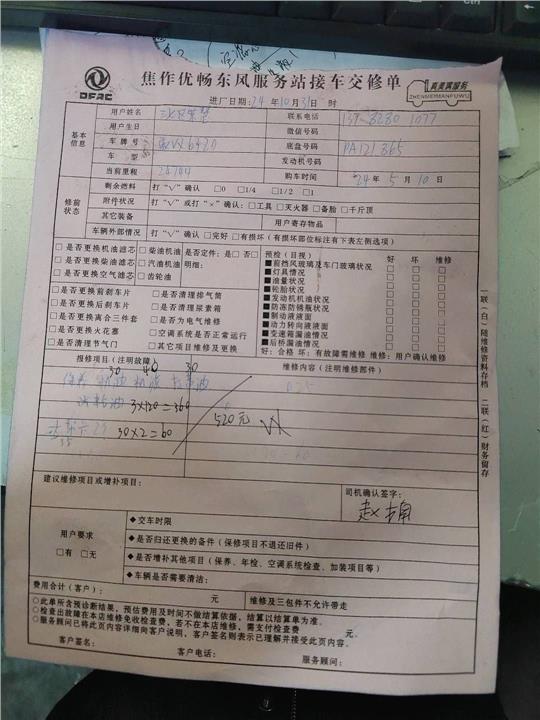 DFAC
焦作优畅东风服务站接车交修单
真美满服务
ZHENMEIMANFUWU
进厂日期:24年10月31日 时
基本信息
用户姓名
联系电话
用户生日
微信号码
车牌号
底盘号码 PA121865
车 型
发动机号码
当前里程
购车时间 24年5月10日
修前状态
剩余燃料 打“√”确认 □0 □1/4 □1/2 □1
附件状况 打“√”或打“×”确认:□工具 □灭火器 □备胎 □千斤顶
其它装备 用户寄存物品
车辆外部情况 打“√”确认 □完好 □有损坏(有损坏部位标注有下表左侧选项)
□是否更换机油滤芯 □柴油机油 是否定件:是□ 否□
□是否更换柴油滤芯 □汽油机油 明细:
□是否更换空气滤芯 □齿轮油
□是否更换前刹车片 □是否清理排气筒
□是否更换后刹车片 □是否清理尿素箱
□是否更换离合三件套 □是否为电气维修
□是否更换火花塞 □空调系统是否正常运行
□是否清理节气门 □其它项目维修及更换
预检(目视) 好 坏 维修
■前挡风玻璃及车门玻璃状况 □ □ □
■灯具情况 □ □ □
■油量状况 □ □ □
■轮胎状况 □ □ □
■发动机机油状况 □ □ □
■防冻防锈瓶状况 □ □ □
■制动液液面 □ □ □
■动力转向液液面 □ □ □
■变速箱漏油情况 □ □ □
■后桥漏油情况 □ □ □
好:合格 坏:有故障需维修 维修:用户确认维修
报修项目(注明故障)
维修内容(注明维修部件)
30 40 30
保养 机油 机滤 柴滤
齿轮油 3×120=360
30×2=60
520元
建议维修项目或增补项目:
司机确认签字:
用户要求
□有 □无
◆交车时限
◆是否归还更换的备件(保修项目不退还旧件)
◆是否增补其他项目(保养、年检、空调系统检查、加装项目等)
◆车辆是否需要清洁:
费用合计(客户): 元
维修及三包件不允许带走
○此单所含预诊断结果,预估费用及时间不做结算依据,结算以结算单为准。
○检查出故障在本店维修免收检查费,若不在本店维修,需支付检查费 元。
○服务顾问已将此页内容详细向客户说明,客户签名则表示已理解并接受此页内容。
客户签名: 客户电话: 服务顾问:
一联(白)随维修资料存档 二联(红)财务留存